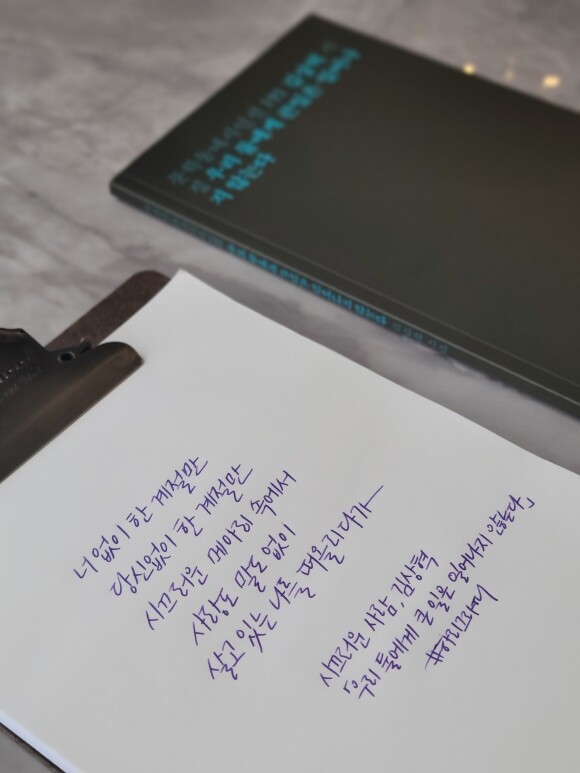 우리 둘에게 큰일은 일어나
지 않는다
너 없이 한 계절만
당신없이 한 계절만
시끄러운 메아리 속에서
사랑도 말도 없이
살고 있는 나를 떠올리다가
시끄러운 사랑, 김상혁
「우리 둘에게 큰 일은 일어나지 않는다」